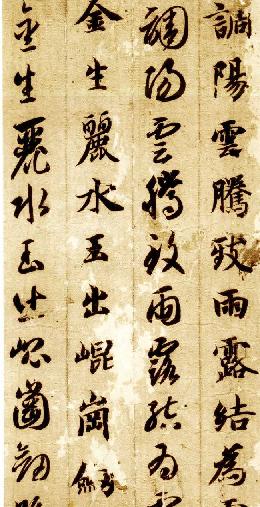 調陽雲騰致雨露結為
調陽雲騰致雨露結為
金生麗水玉出崐崗劒
金生麗水玉出崐崗劒